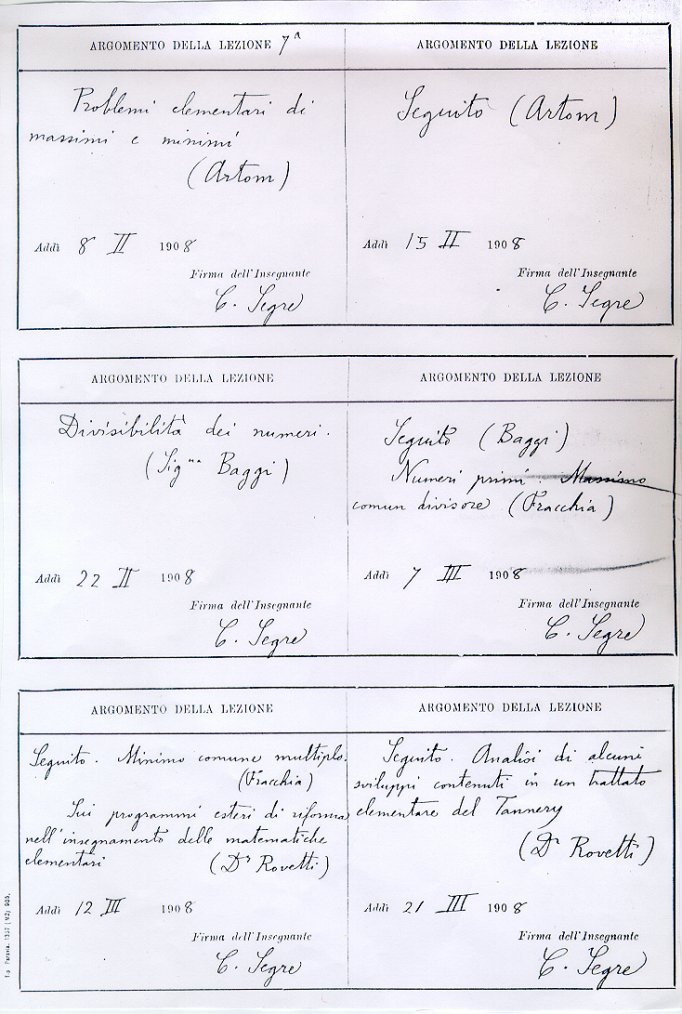 ARGOMENTO DELLA LEZIONE 7ª
Problemi elementari di
massimi e minimi
(Artom)
Addì 8 II 1908
Firma dell'Insegnante
C. Segre
ARGOMENTO DELLA LEZIONE
Seguito (Artom)
Addì 15 II 1908
Firma dell'Insegnante
C. Segre
ARGOMENTO DELLA LEZIONE
Divisibilità dei numeri.
(Sigⁿᵃ Baggi)
Addì 22 II 1908
Firma dell'Insegnante
C. Segre
ARGOMENTO DELLA LEZIONE
Seguito (Baggi)
Numeri primi. Massimo
comun divisore (Fracchia)
Addì 7 III 1908
Firma dell'Insegnante
C. Segre
ARGOMENTO DELLA LEZIONE
Seguito. Minimo comune multiplo.
(Fracchia)
Sui programmi esteri di riforma
nell'insegnamento delle matematiche
elementari (Dʳ Rovetti)
Addì 12 III 1908
Firma dell'Insegnante
C. Segre
ARGOMENTO DELLA LEZIONE
Seguito. Analisi di alcuni
sviluppi contenuti in un trattato
elementare del Tannery
(Dʳ Rovetti)
Addì 21 III 1908
Firma dell'Insegnante
C. Segre